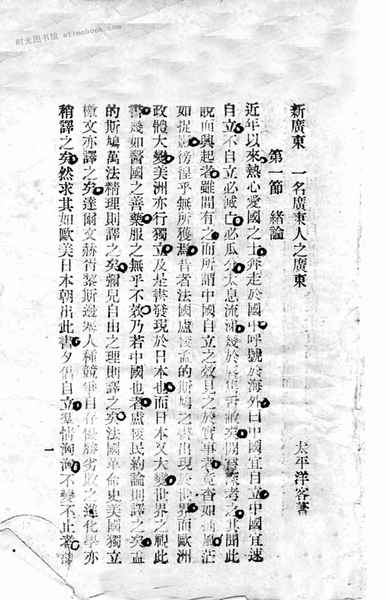 时光图书馆 atimebook.com
新廣東 一名廣東人之廣東
太平洋客著
第一節 緒論
近年以來熱心愛國之士奔走於國中呼號於海外曰中國宜自立中國宜速
自立不自立必滅亡必瓜分太息流涕幾於
說而興起者雖間有之而所謂中國自立之效見之於實事者
如捉影徬徨乎無所獲焉昔者法國盧梭孟的斯鳩之書出現於世界而歐洲
政體大變美洲亦行獨立及是書發現於日本也而日本又大變世界之視此
書幾如醫國之善藥服之無乎不效乃若中國也者盧梭民約論則譯之矣孟
的斯鳩萬法精理則譯之矣彌兒自由之理則譯之矣法國革命史美國獨立
檄文亦譯之矣達爾文赫胥黎斯邊塞人種競爭自存優勝劣敗之進化學亦
稍譯之矣然求其如歐美日本朝出此書夕倡自立羣情洶洶不變不止者
一